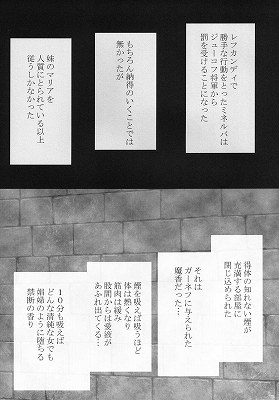 レフカンディで
勝手な行動をとったミネルバは
ジューコフ将軍から
罰を受けることになった
もちろん納得のいくことでは
無かったが
妹のマリアを
人質にとられている以上
従うしかなかった
得体の知れない煙が
充満する部屋に
閉じ込められた
それは
ガーネフに与えられた
魔香だった…
煙を吸えば吸うほど
体は熱くなり
筋肉は緩み
股間からは愛液が
あふれ出てくる…
１０分も吸えば
どんな清純な女でも
娼婦のように堕ちる
禁断の香り